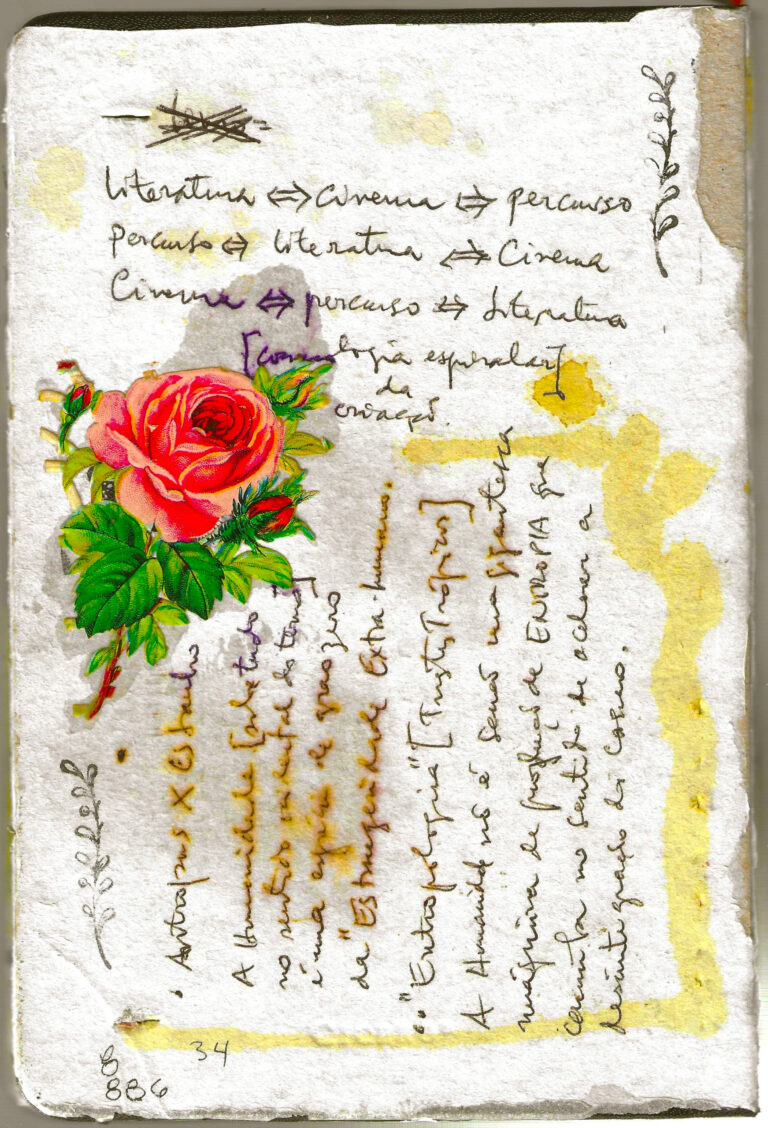 Literatura ⇔ Cinema ⇔ percurso
Percurso ⇔ Literatura ⇔ Cinema
Cinema ⇔ percurso ⇔ Literatura
[cosmologia espiralar]
da
criação.
. Antropos X Estranho
A Humanidade [sobretudo
no sentido ocidental do termo]
é uma espécie de grau zero
da "Estrangeiridade Extra-humano.
.."Entropologia" [Tristes Trópicos]
A Humanidade não é senão uma gigantesca
máquina de produção de ENTROPIA que
caminha no sentido de acelerar a
desintegração do Cosmo.
34
8
886